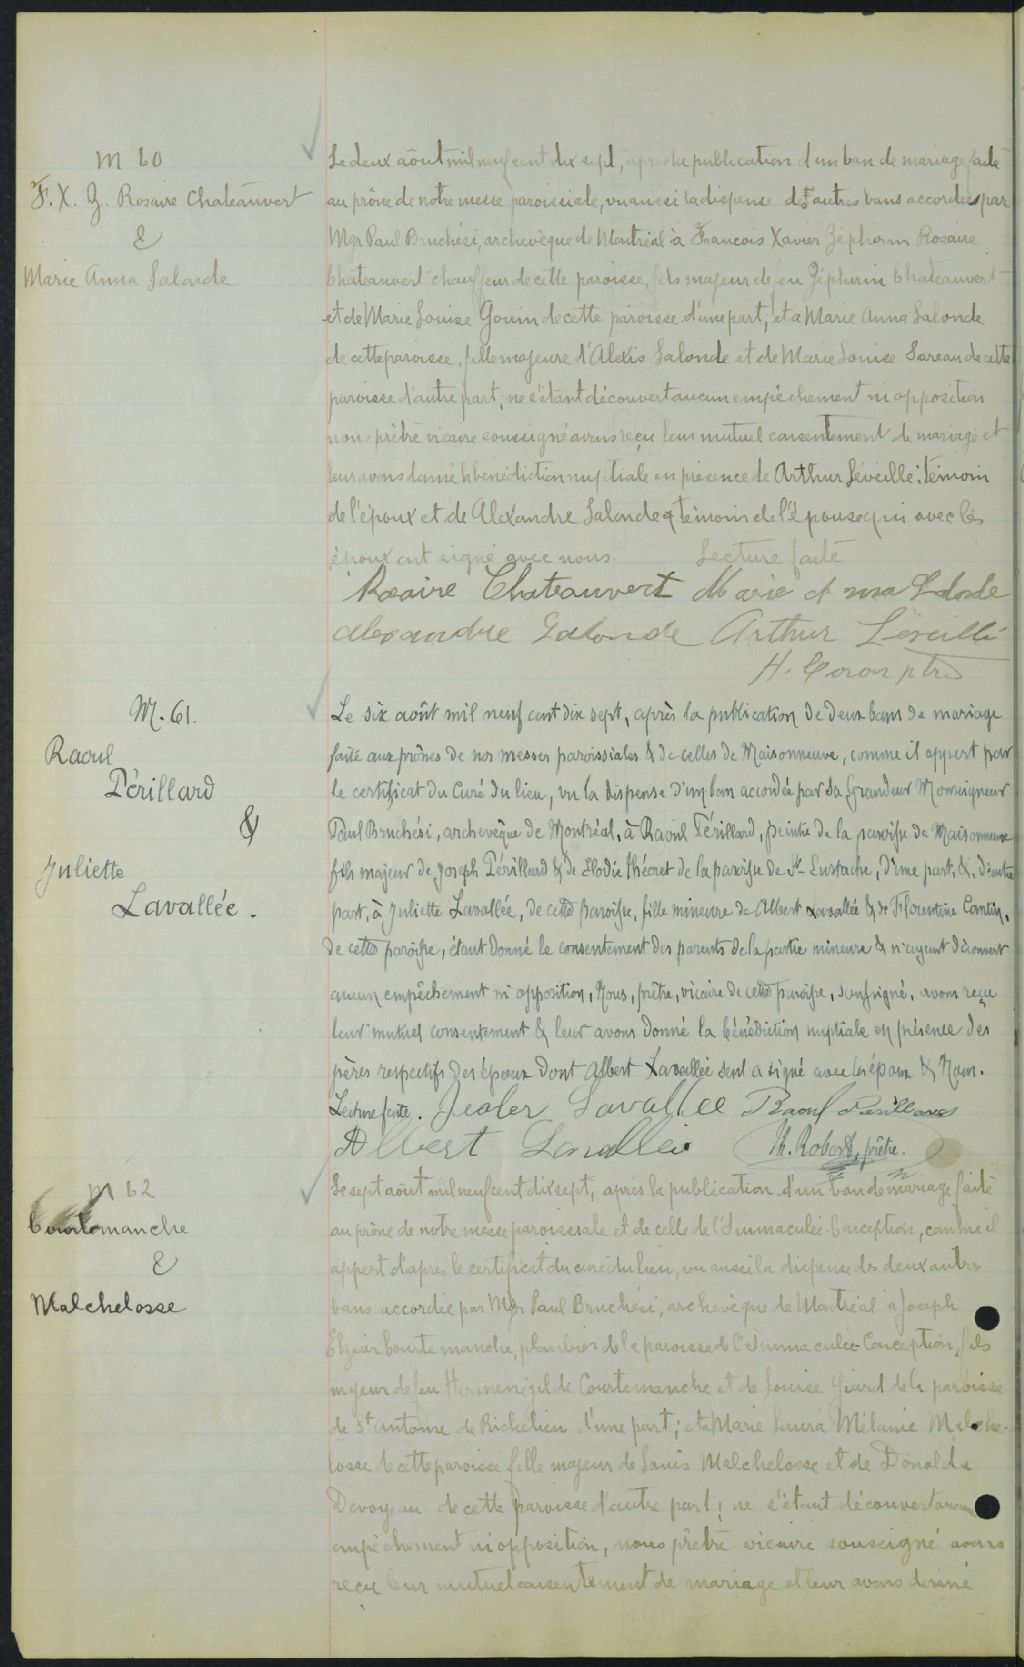 M 60
F. X. Z. Rosaire Chateauvert
&
Marie Anna Lalonde
Le deux août mil neuf cent dix sept, après la publication d'un ban de mariage faite
au prône de notre messe paroissiale, vu aussi la dispense des autres bans accordée par
Mgr Paul Bruchési, archevêque de Montréal à Francois Xavier Zéphirin Rosaire
Chateauvert chauffeur de cette paroisse, fils majeur de feu Zéphirin Chateauvert
et de Marie Louise Gouin de cette paroisse d'une part; et à Marie Anna Lalonde
de cette paroisse, fille majeure d'Alexis Lalonde et de Marie Louise Sareau de cette
paroisse d'autre part; ne s'étant découvert aucun empêchement ni opposition
nous prêtre vicaire soussigné avons reçu leur mutuel consentement de mariage et
leur avons donné la bénédiction nuptiale en présence de Arthur Léveillé témoin
de l'époux et de Alexandre Lalonde témoin de l'épouse qui avec les
époux ont signé avec nous. Lecture faite
Rosaire Chateauvert Marie Anna Lalonde
Alexandre Lalonde Arthur Léveillé
H. Caron ptre
M. 61.
Raoul
Périllard
&
Juliette
Lavallée.
Le six août mil neuf cent dix sept, après la publication de deux bans de mariage
faite aux prônes de nos messes paroissiales & de celles de Maisonneuve, comme il appert par
le certificat du Curé du lieu, vu la dispense d'un ban accordée par Sa Grandeur Monseigneur
Paul Bruchési, archevêque de Montréal, à Raoul Périllard, peintre de la paroisse de Maisonneuve
fils majeur de Joseph Périllard & de Elodie Théoret de la paroisse de St Eustache, d'une part, &, d'autre
part, à Juliette Lavallée, de cette paroisse, fille mineure de Albert Lavallée & de Florentine Cantin,
de cette paroisse, étant donné le consentement des parents de la partie mineure & n'ayant découvert
aucun empêchement ni opposition, Nous, prêtre, vicaire de cette paroisse, soussigné, avons reçu
leur mutuel consentement & leur avons donné la bénédiction nuptiale en présence des
pères respectifs des époux dont Albert Lavallée seul a signé avec les époux & Nous.
Lecture faite. Lavallée Raoul Perillard
Albert Lavallée Th. Robert, prêtre.
M 62
Courtemanche
&
Malchelosse
Le sept août mil neuf cent dix sept, après la publication d'un ban de mariage faite
au prône de notre messe paroissiale et de celle de l'Immaculée-Conception, comme il
appert d'après le certificat du curé du lieu, vu aussi la dispense des deux autres
bans accordée par Mgr Paul Bruchési, archevêque de Montréal à Joseph
Elzéar Courtemanche, plombier de la paroisse de l'Immaculée-Conception, fils
majeur de feu Herménégilde Courtemanche et de Louise Girard de la paroisse
de St Antoine de Richelieu d'une part; et à Marie Laura Mélanie Malche-
losse de cette paroisse fille majeur de Louis Malchelosse et de Donalda
Devoyeau de cette paroisse d'autre part; ne s'étant découvert aucun
empêchement ni opposition, nous prêtre vicaire soussigné avons
reçu leur mutuel consentement de mariage et leur avons donné